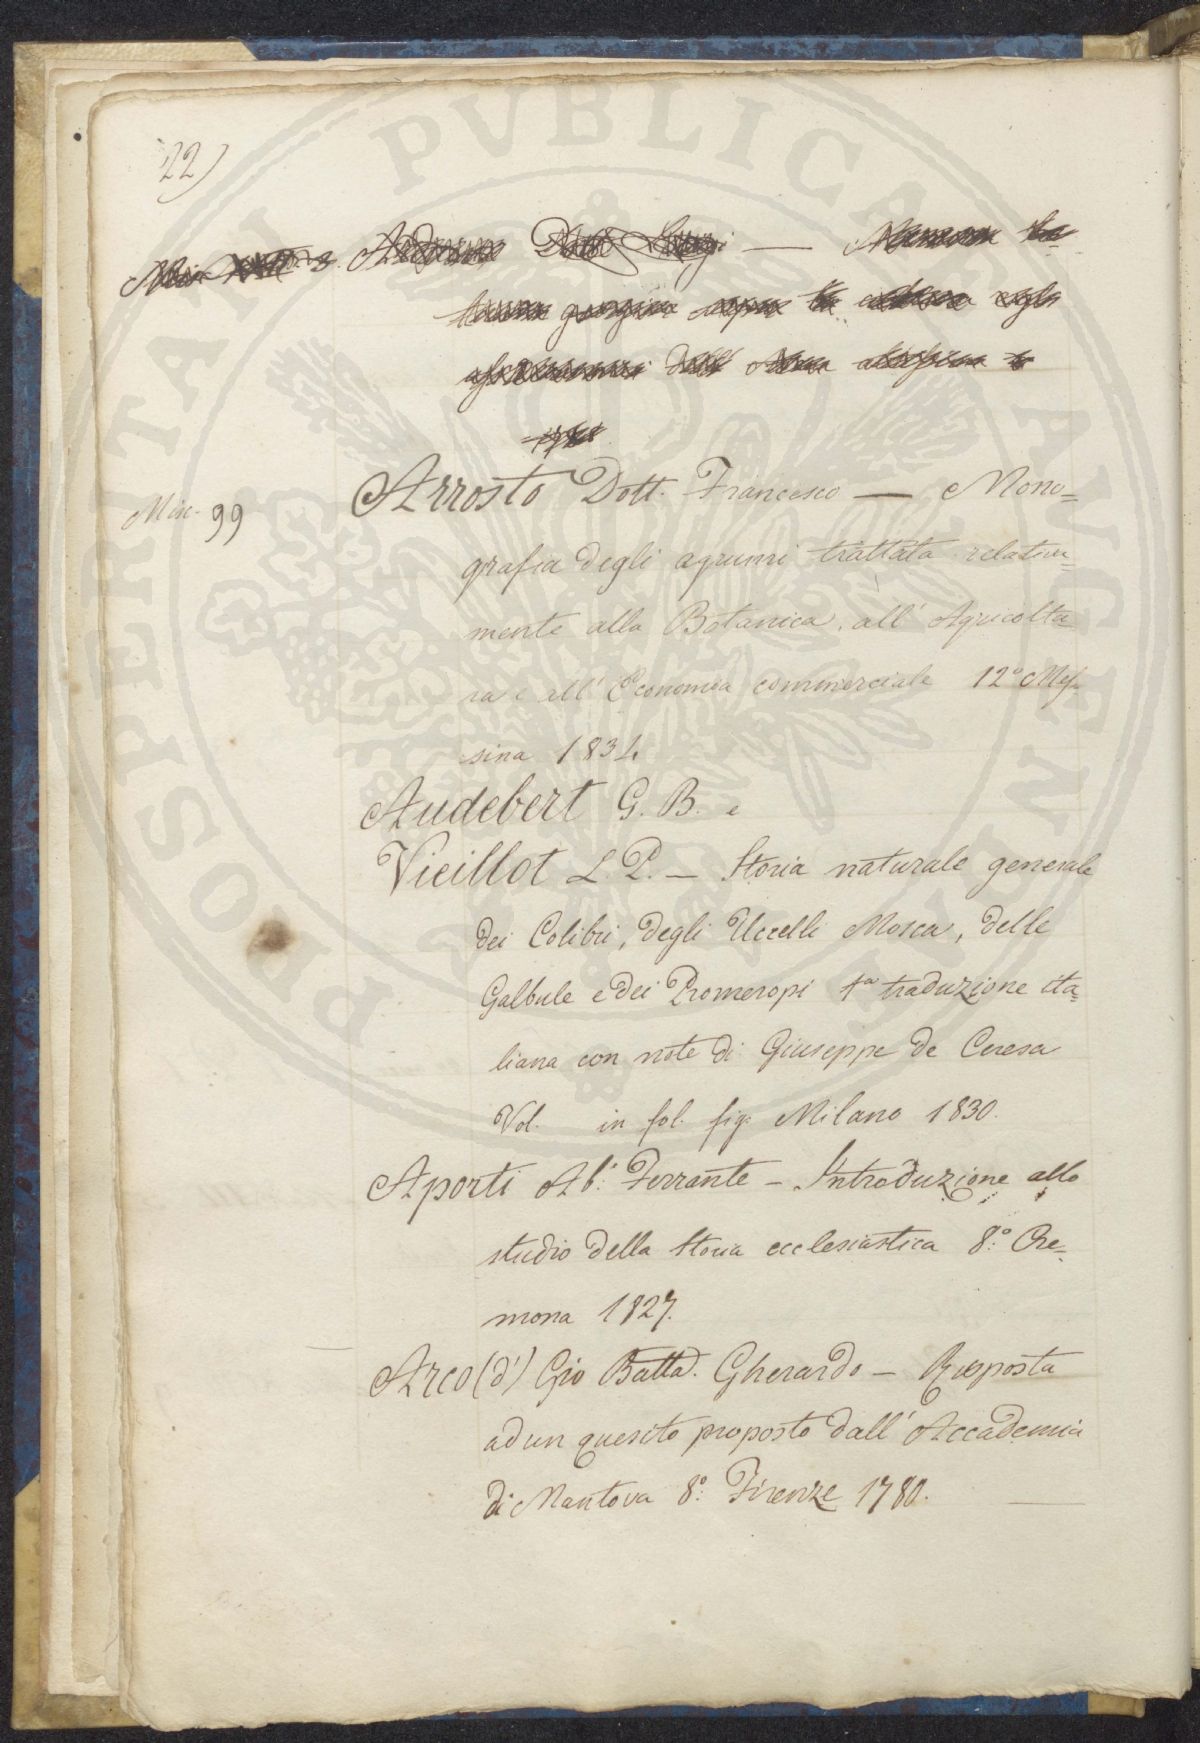 22)
Arrosto Dott. Francesco — Mono=
Misc. 99
grafia degli agrumi trattata relativa=
mente alla Botanica, all' Agricoltu=
ra e all' Economia commerciale 12º Mes=
sina 1834
Audebert G. B. e
Vieillot L. P. — Storia naturale generale
dei Colibri, degli Uccelli Mosca, delle
Galbule e dei Promeropi 1ª traduzione ita=
liana con note di Giuseppe de Ceresa
Vol. in fol. fig. Milano 1830.
Aporti Ab. Ferrante — Introduzione allo
studio della Storia ecclesiastica 8º Cre=
mona 1827.
Arco (d') Gio Batta. Gherardo — Risposta
ad un quesito proposto dall' Accademia
di Mantova 8º Firenze 1780.
PROSPERITAN PVBLICAM AVGEN